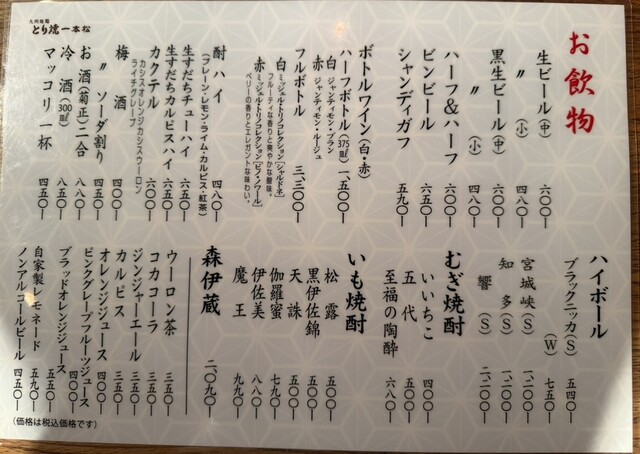 お飲物
生ビール(中) 六〇〇―
〃 (小) 四八〇―
黒生ビール(中) 六〇〇―
〃 (小) 四八〇―
ハーフ&ハーフ 六〇〇―
ビンビール 六五〇―
シャンディガフ 五九〇―
ボトルワイン(白・赤)
ハーフボトル(375㎖) 一、五〇〇―
白 ジャンティモン・ブラン
赤 ジャンティモン・ルージュ
フルボトル 三、三〇〇―
白 ミッシェル・トリノコレクション[シャルドネ]
フルーティな香りと爽やかな酸味。
赤 ミッシェル・トリノコレクション[ピノ・ノワール]
ベリーの香りとエレガントな味わい。
酎ハイ 四八〇―
(プレーン・レモン・ライム・カルピス・紅茶)
生すだちチューハイ 六五〇―
生すだちカルピスハイ 六五〇―
カクテル 六〇〇―
カシスオレンジ カシスウーロン
ライチグレープ
梅酒 四〇〇―
〃 ソーダ割り 四五〇―
お酒(菊正)二合 八五〇―
冷酒(300㎖) 八五〇―
マッコリ一杯 四五〇―
九州地鶏
とり焼一本松
ハイボール
ブラックニッカ(S) 五四〇―
(W) 七五〇―
宮城峡(S) 一、二〇〇―
知多(S) 一、二〇〇―
響(S) 二、二〇〇―
むぎ焼酎
いいちこ 四〇〇―
五代 五〇〇―
至福の陶酔 六八〇―
いも焼酎
松露 五〇〇―
黒伊佐錦 五〇〇―
天誅 五〇〇―
伽羅蜜 七九〇―
伊佐美 八八〇―
魔王 九九〇―
森伊蔵 二、〇九〇―
ウーロン茶 三五〇―
コカコーラ 三五〇―
ジンジャーエール 三五〇―
カルピス 三五〇―
オレンジジュース 四〇〇―
ピンクグレープフルーツジュース 四〇〇―
ブラッドオレンジジュース 五五〇―
自家製レモネード 五九〇―
ノンアルコールビール 四五〇―
(価格は税込価格です)